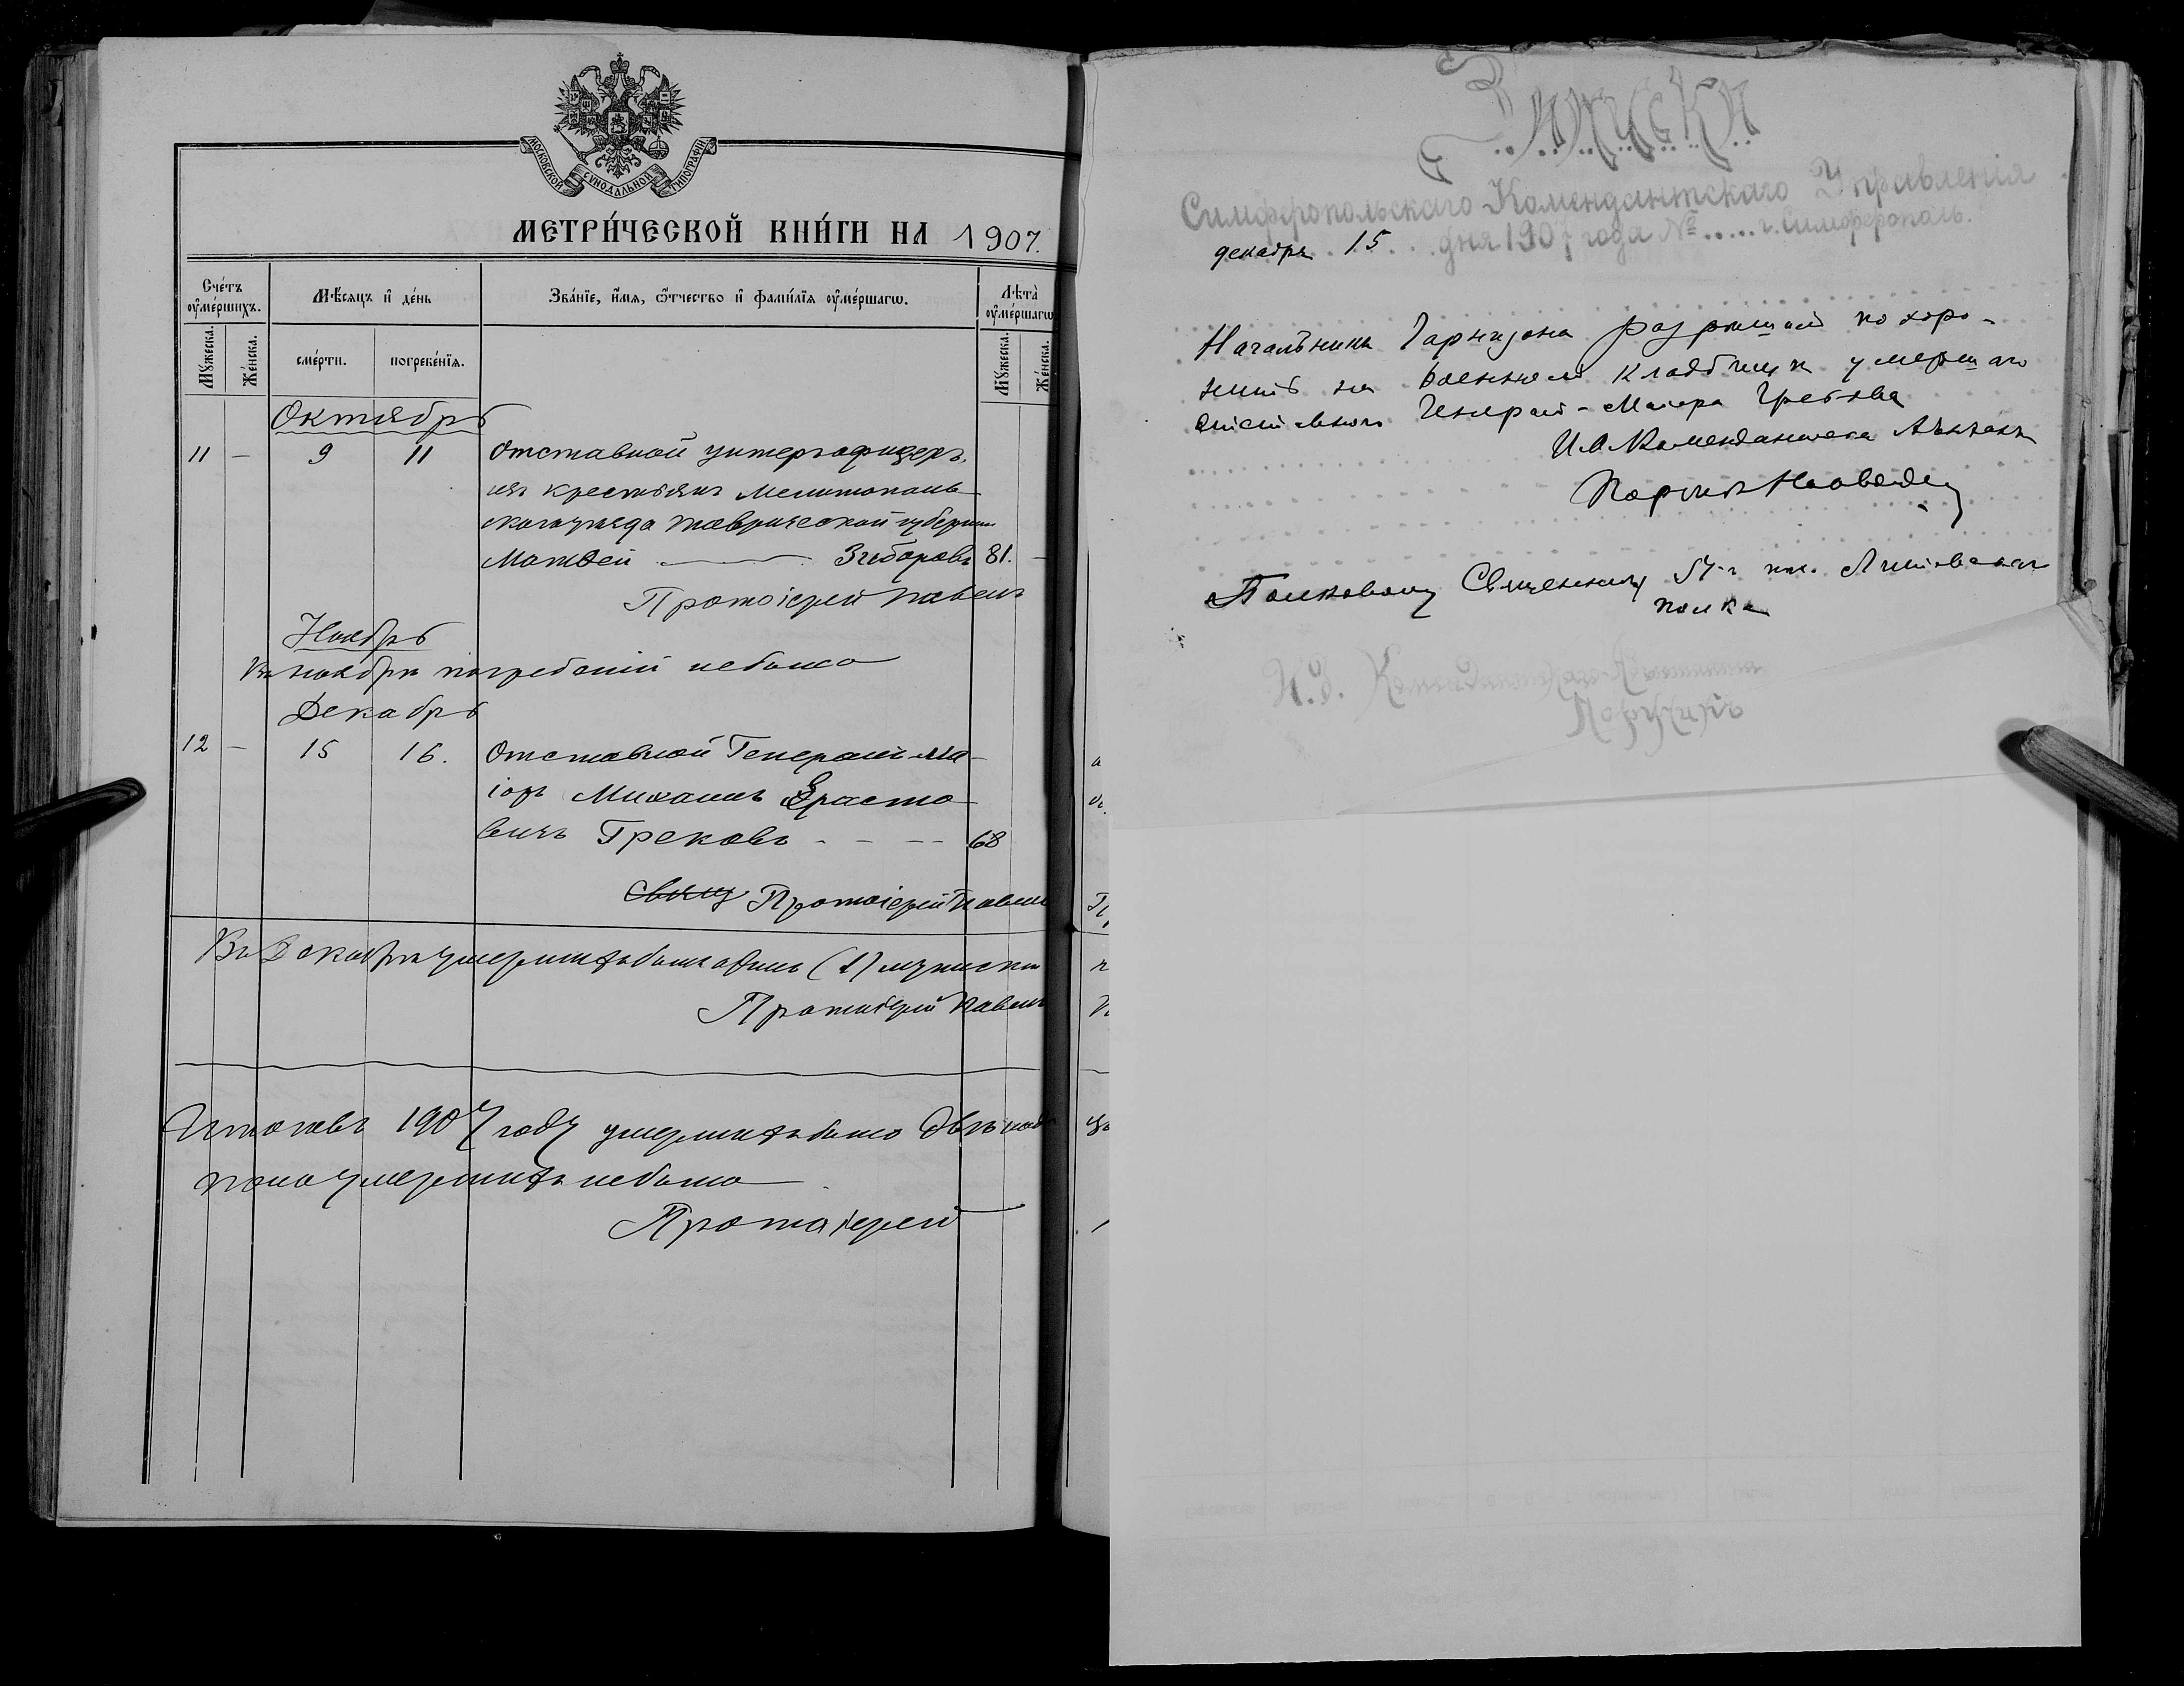 МОСКОВСКОЙ СѴНОДАЛЬНОЙ ТИПОГРАФІИ
МЕТРИ́ЧЕСКОЙ КНИ́ГИ НА 1907.
Сче́тъ оумéршихъ.
Мѣ́сяцъ и де́нь
Зва́нїе, и́мя, ѻ҆́тчество и фами́лїя оумéршагѡ.
Лѣта̀ оумéршагѡ
Му́жеска.
Же́нска.
смéрти.
погребе́нїя.
Му́жеска.
Же́нска.
Октябрь
11 — 9 11 Отставной унтеръ-офицеръ,
изъ крестьянъ Мелитополь-
скаго уѣзда Таврической губерніи
Матвей — Зиборовъ 81. —
Протоіерей Павелъ
Ноябрь
Въ ноябрѣ погребеній небыло
Декабрь
12 — 15 16. Отставной Генералъ-Ма-
іоръ Михаилъ Ерасто-
вичъ Грековъ - - - - 68
Свящ Протоіерей Павелъ
Въ Декабрѣ умершихъ былъ одинъ (1) мужска
Протоіерей Павелъ
Итого въ 1907 году умершихъ было двѣнад
пола умершихъ небыло
Протоіерей
Записки
Симферопольскаго Комендантскаго Управленія
декабря 15 дня 1907 года № ..... г. Симферополь.
Начальникъ Гарнизона разрѣшилъ похоро-
нить на военномъ кладбищѣ умершаго
отставного Генералъ-Маіора Грекова
И.д. Коменданскаго Адъютанта
Поручикъ
Полковому Священнику 51-г пѣх. Литовскаго
полка
И.д. Комендантскаго Адъютанта
Поручикъ